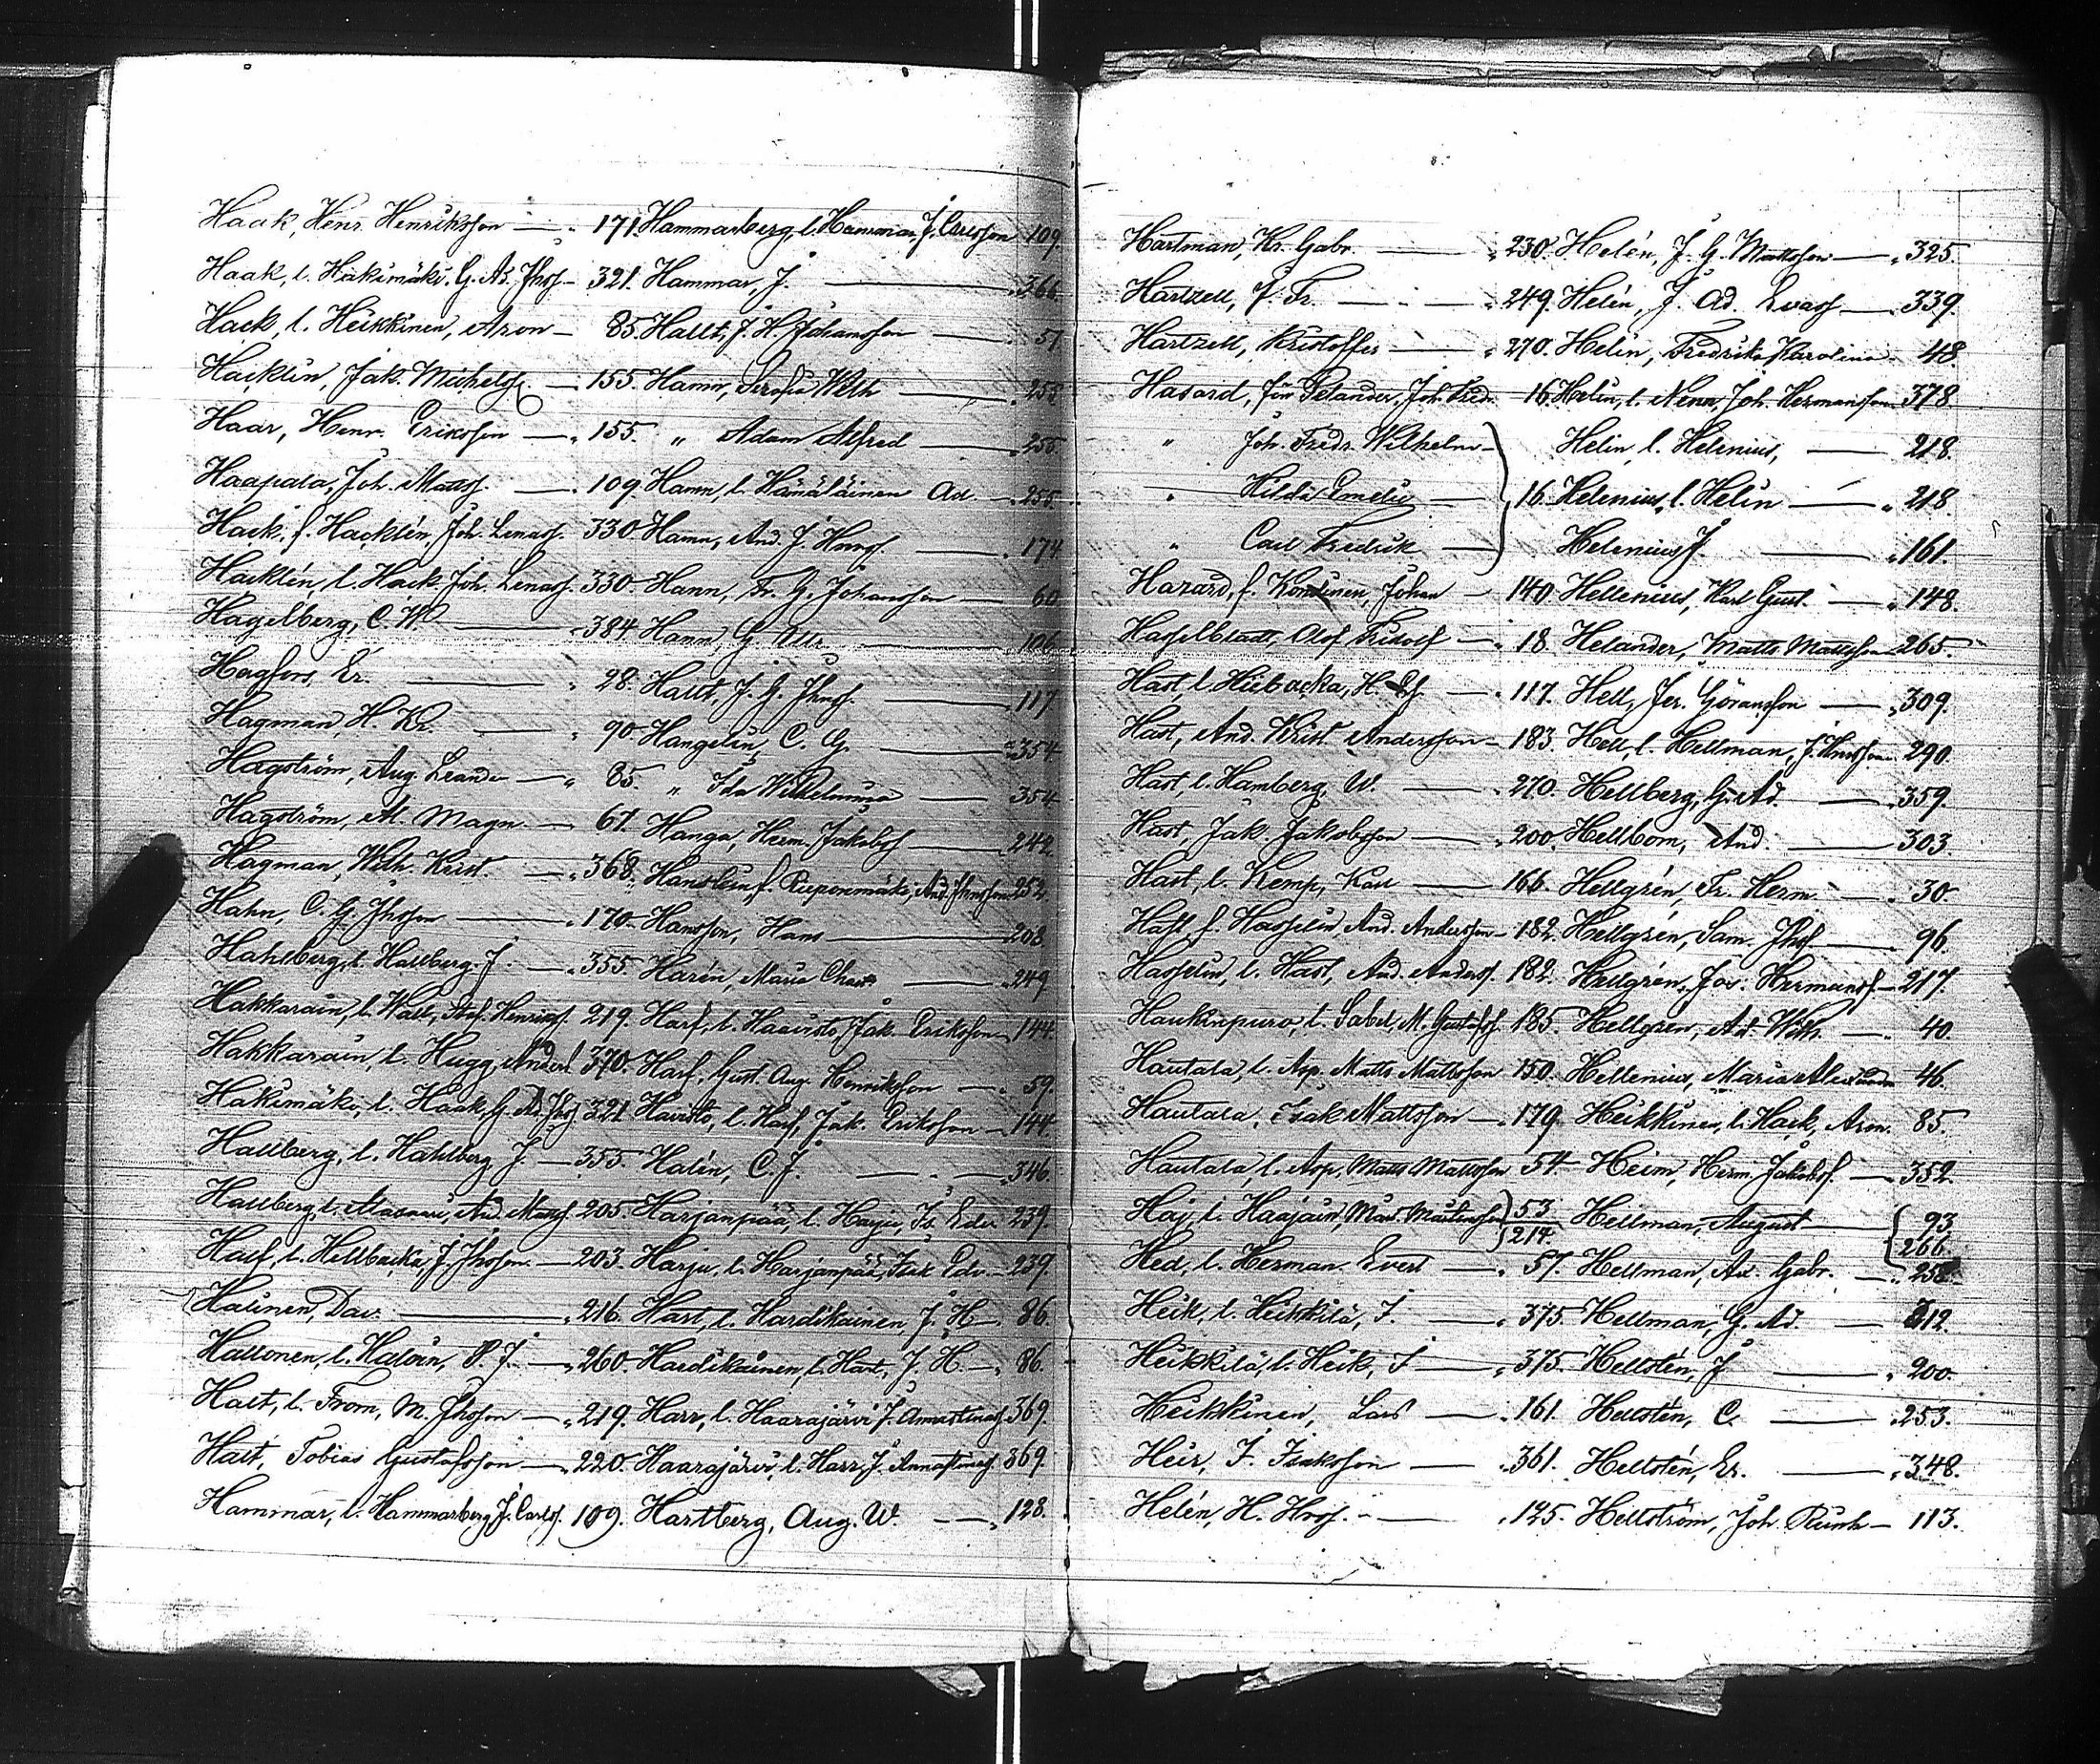 Haak, Henr. Henriksson — 171.
Haak, l. Hakimäki, G. Ad. Jhss. — 321.
Hack, l. Heikkinen, Aron — 85.
Hacklin, Jak. Michelss. — 155.
Haar, Henr. Eriksson — 155.
Haapala, Joh. Matss. — 109.
Hack, f. Hacklén, Joh. Lenass. 330.
Hacklén, l. Hack, Joh. Lenass. 330.
Hagelberg, C. W. — 384.
Hagfors, Er. — 28.
Hagman, H. Kr. — 90.
Hagström, Aug. Leander — 85.
Hagström, Al. Magn. — 67.
Hagman, Wilh. Krist. — 368.
Hahn, C. G. Jhsson — 170.
Hahlberg, l. Hallberg, J. — 355.
Hakkarain, l. Wall, Henrikss. 219.
Hakkarain, l. Hugg, Anders 370.
Hakimäki, l. Haak, G. Ad. Jhss. 321.
Hallberg, l. Hahlberg J. — 355.
Hallberg, l. And. Matss. 205.
Half, l. Hellbacka, J. Jhsson — 203.
Halinen, Dav. — 216.
Hallonen, l. Haloin, P. J. — 260.
Halt, l. From, M. Jhsson — 219.
Halt, Tobias Gustafsson — 220.
Hammar, l. Hammarberg J. Carlss. 109.
Hammarberg, l. Hammar, J. Carlsson 109.
Hammar, J. — 366.
Hallt, J. H. Johansson — 51
Hamn, Serafia Wilh — 255.
„ Adam Alfred — 255.
Hamn, l. Hämäläinen Ad. — 255.
Hamn, And. J. Hnrss. — 174
Hann, Fr. G. Johansson — 60
Hamn, G. — 106
Hallt, J. G. Jhnss. — 117
Hangelin, C. G. — 354.
„ Ida Wilhelmina — 354.
Hanga, Herm. Jakobss. — 242
Hanslein f. Rieponmäki, And. Jhnsson 252.
Hansson, Hans — 208
Harén, Maria — 249
Harf, l. Haavisto, Jak. Eriksson 144.
Harf, Gust. Aug. Henriksson — 59.
Havisto, l. Harf, Jak. Eriksson — 144.
Halén, C. J. — 346.
Harjanpää, l. Harju, Is. Edv. 239.
Harju, l. Harjanpää, Isak Edv. — 239.
Hart, l. Hardikainen, J. H. — 86.
Hardikainen, l. Hart, J. H. — 86.
Harr, l. Haarajärvi J. Annastinass. 369.
Haarajärvi, l. Harr, J. Annastinass. 369.
Hartberg, Aug. W. — 128.
Hartman, Kr. Gabr. — 230.
Hartzell, J. Fr. — 249.
Hartzell, Kristoffer — 270.
Hasard, för Selander, Joh. Fredr. 16.
„ Joh. Fredr. Wilhelm —
„ Hilda Emelie — 16.
„ Carl Fredrik —
Hazard, f. Kontinen, Johan — 140.
Hasselbladt, Olof Fridolf — 18.
Hast, l. Hiibacka, H. — 117.
Hast, And. Krist. Andersson — 183.
Hast, l. Hamberg, W. — 270.
Hast, Jak. Jakobsson — 200.
Hast, l. Kemp, Karl — 166.
Hast f. Hasselin, And. Andersson — 182.
Hasselin, l. Hast, And. Anderss. 182.
Haukinpuro, l. Sabel, M. Gustafss. 185.
Hautala, l. Asp. Matts Mattsson 150.
Hautala, Isak Mattsson — 179.
Hautala, l. Asp, Matts Mattsson 54.
Haj, l. Haajain, Mårt. Mårtensson } 53 / 214.
Hed, l. Herman. Evert — 57.
Heik, l. Heikkilä, J. — 375.
Heikkilä, l. Heik, J — 375.
Heikkinen, Lars — 161.
Heir, J. Isaksson — 361.
Helén, H. Hrss. — 125.
Helén, J. G. Mattsson — 325.
Helin, J. Ad. Evass. — 339.
Helin, Fredrika Karolina 48
Helin, l. Nenn, Joh. Hermansson 378.
Helin, l. Helenius, — 218.
Helenius, l. Helin — 218.
Helenius J. — 161.
Hellenius, Karl Gust. — 148.
Helander, Matts Mattsson 265.
Hell, Jer. Göransson — 309.
Hell, l. Hellman, J. Hnrsson 290.
Hellberg, G. Ad. — 359.
Hellbom, And. — 303.
Hellgrén, Fr. Herm. — 30.
Hellgrén, Sam. Jhss. — 96.
Hellgrén, Jos. Hermanss. — 217.
Hellgren, Ad. Wilh. — 40.
Hellenius, Maria Alexandra 46.
Heikkinen, l. Hack, Aron. 85.
Heim, Herm. Jakobss. — 352.
Hellman, August — { 93 / 266.
Hellman, Ad. Gabr. — 258.
Hellman, G. Ad. — 312.
Hellstén, J. — 200.
Hellstén, C. — 253.
Hellstén, Er. — 348.
Hellström, Joh. Runh — 113.